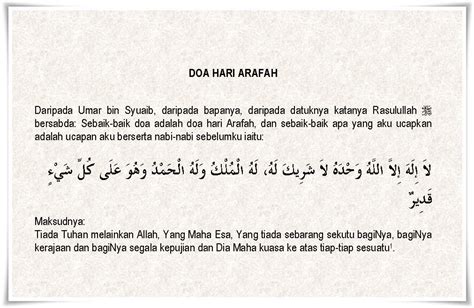 DOA HARI ARAFAH
Daripada Umar bin Syuaib, daripada bapanya, daripada datuknya katanya Rasulullah ﷺ
bersabda: Sebaik-baik doa adalah doa hari Arafah, dan sebaik-baik apa yang aku ucapkan
adalah ucapan aku berserta nabi-nabi sebelumku iaitu:
لاَ إِلَهَ إِلاَّ اللَّهُ وَحْدَهُ لاَ شَرِيكَ لَهُ، لَهُ الْمُلْكُ وَلَهُ الْحَمْدُ وَهُوَ عَلَى كُلِّ شَيْءٍ
قَدِيرٌ
Maksudnya:
Tiada Tuhan melainkan Allah, Yang Maha Esa, Yang tiada sebarang sekutu bagiNya, bagiNya
kerajaan dan bagiNya segala kepujian dan Dia Maha kuasa ke atas tiap-tiap sesuatu¹.